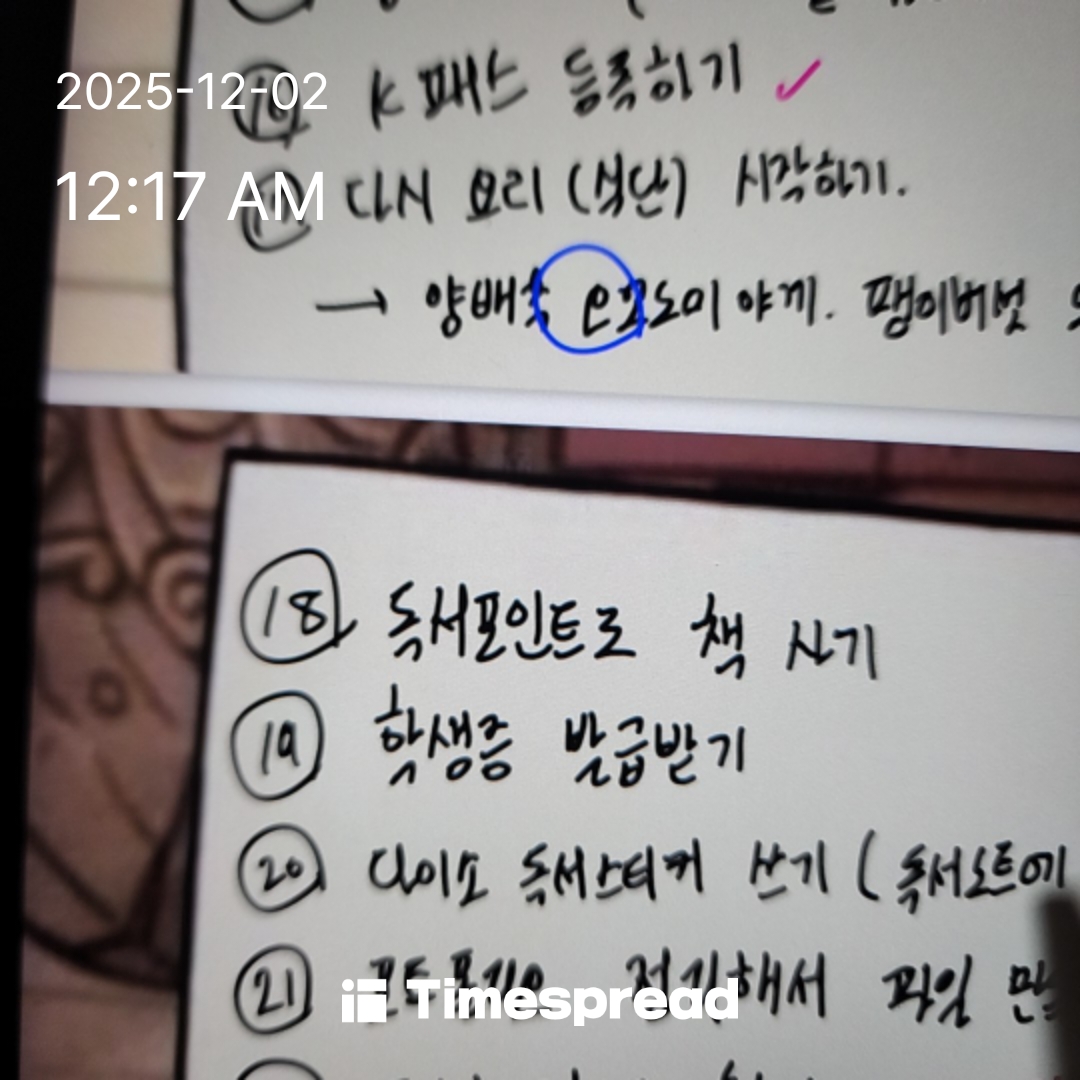 2025-12-02
⑯ K 패스 등록하기 ✓
12:17 AM
다시 요리 (식단) 시작하기.
→ 양배추 오꼬노미야끼. 팽이버섯
⑱ 독서포인트로 책 사기
⑲ 학생증 발급받기
⑳ 다이소 독서스티커 쓰기 (독서노트에
㉑ 정리해서 파일
Timespread